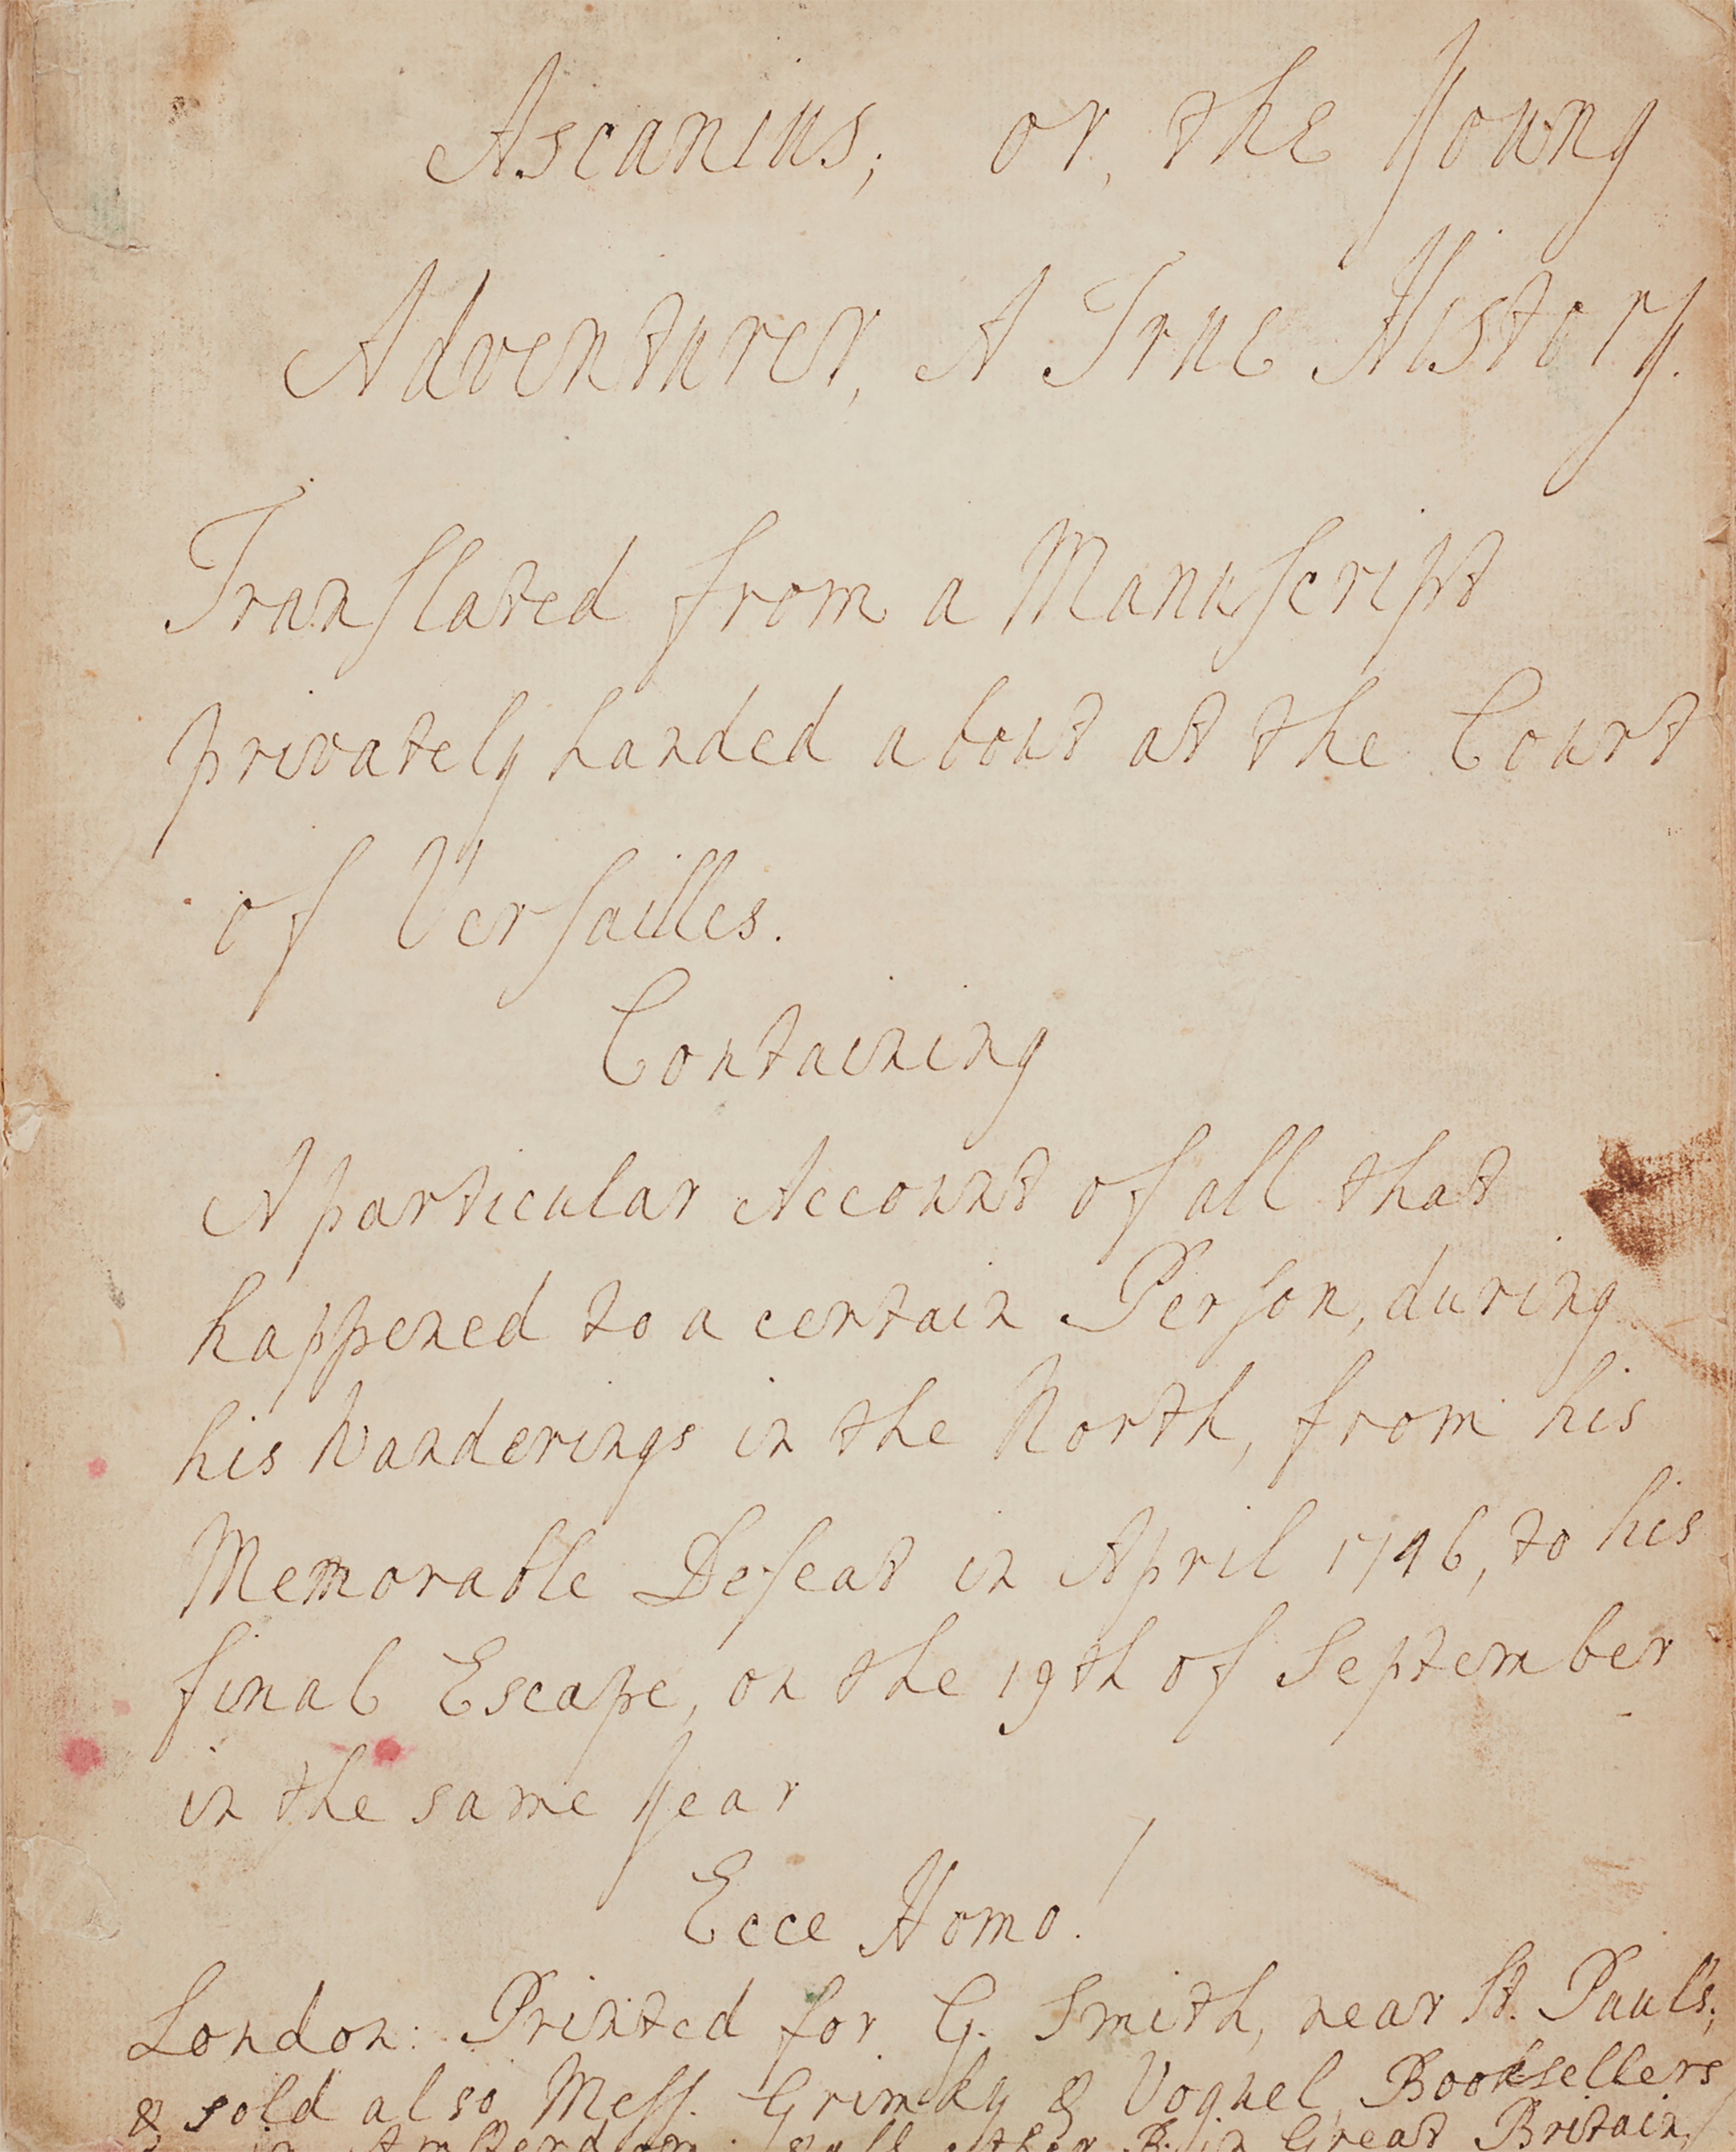 Ascanius; or, the Young
Adventurer, A True History.
Tranſlated from a Manuſcript
privately handed about at the Court
of Verſailles.
Containing
A particular Account of all that
happened to a certain Perſon, during
his Wanderings in the North, from his
Memorable Defeat in April 1746, to his
final Escape, on the 19th of September
in the same Year
Ecce Homo!
London: Printed for G. Smith, near St. Pauls;
& sold also Meſſ. Grimsky & Vognel, Booksellers
in Amsterdam & all other B. in Great Britain